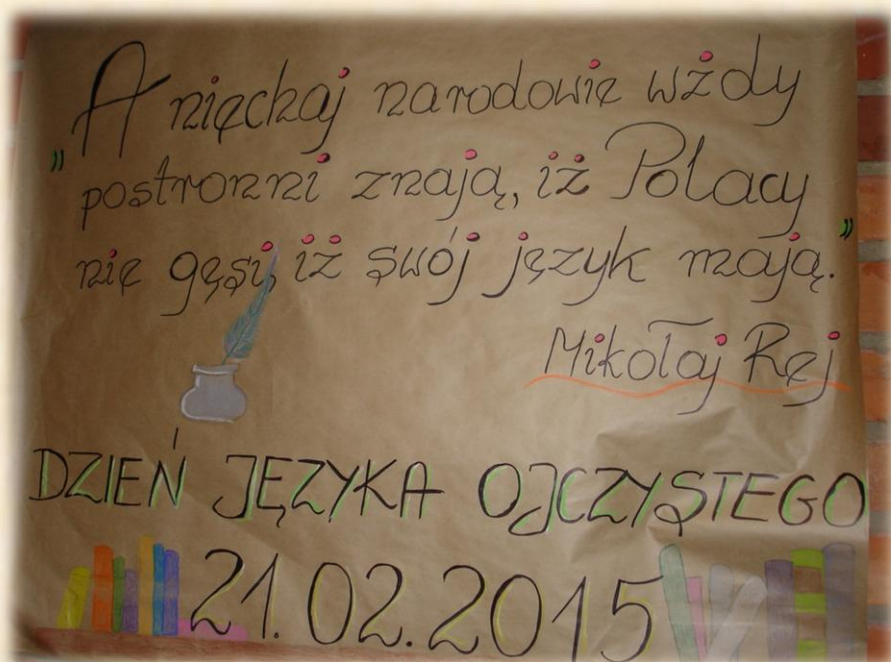 „A niechaj narodowie wżdy
postronni znają, iż Polacy
nie gęsi, iż swój język mają.”
Mikołaj Rej
DZIEŃ JĘZYKA OJCZYSTEGO
21.02.2015